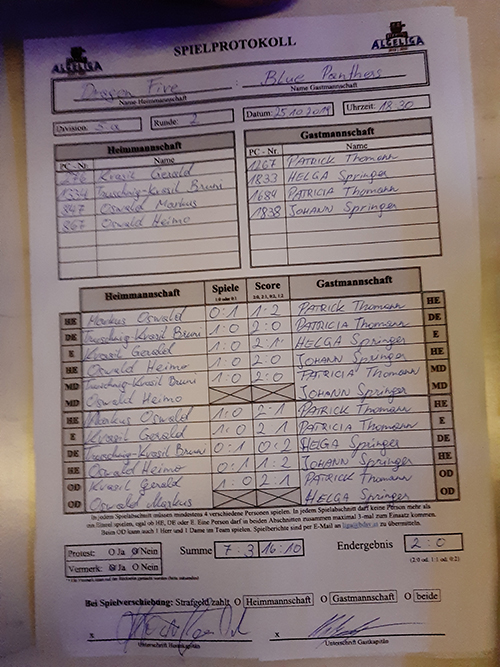 SPIELPROTOKOLL
ALGELIGA ALGELIGA
Dragon Five : Blue Panthers
Name Heimmannschaft Name Gastmannschaft
Division: 5a Runde: 2 Datum: 25.10.2019 Uhrzeit: 18:30
Heimmannschaft Gastmannschaft
PC - Nr. Name PC - Nr. Name
Krasil Gerald 1267 PATRICK Thomann
1334 Krasil Bruni 1833 HELGA Springer
847 Oswald Markus 1684 PATRICIA Thomann
867 Oswald Heimo 1838 JOHANN Springer
Heimmannschaft Spiele Score Gastmannschaft
1:0 oder 0:1 2:0, 2:1, 0:2, 1:2
HE Markus Oswald 0:1 1:2 PATRICK Thomann HE
DE Krasil Bruni 1:0 2:0 PATRICIA Thomann DE
E Krasil Gerald 1:0 2:1 HELGA Springer E
HE Oswald Heimo 1:0 2:0 JOHANN Springer HE
MD Krasil Bruni 1:0 2:0 PATRICIA Thomann MD
MD Oswald Heimo JOHANN Springer MD
HE Markus Oswald 1:0 2:1 PATRICK Thomann HE
E Krasil Gerald 1:0 2 1 PATRICIA Thomann E
DE Krasil Bruni 0:1 0:2 HELGA Springer DE
HE Oswald Heimo 0:1 1:2 JOHANN Springer HE
OD Krasil Gerald 1:0 2:1 PATRICK Thomann OD
OD Oswald Markus HELGA Springer OD
In jedem Spielabschnitt müssen mindestens 4 verschiedene Personen spielen. In jedem Spielabschnitt darf keine Person mehr als
ein Einzel spielen, egal ob HE, DE oder E. Eine Person darf in beiden Abschnitten zusammen maximal 3-mal zum Einsatz kommen.
Beim OD kann auch 1 Herr und 1 Dame im Team spielen. Spielberichte sind per E-Mail an zu übermitteln.
Protest: O Ja Nein Summe 7:3 16:10 Endergebnis 2:0
Vermerk: Ja O Nein (2:0 od. 1:1 od. 0:2)
Bei Spielverschiebung: Strafgeld zahlt O Heimmannschaft O Gastmannschaft O beide
x x
Unterschrift Heimkapitän Unterschrift Gastkapitän